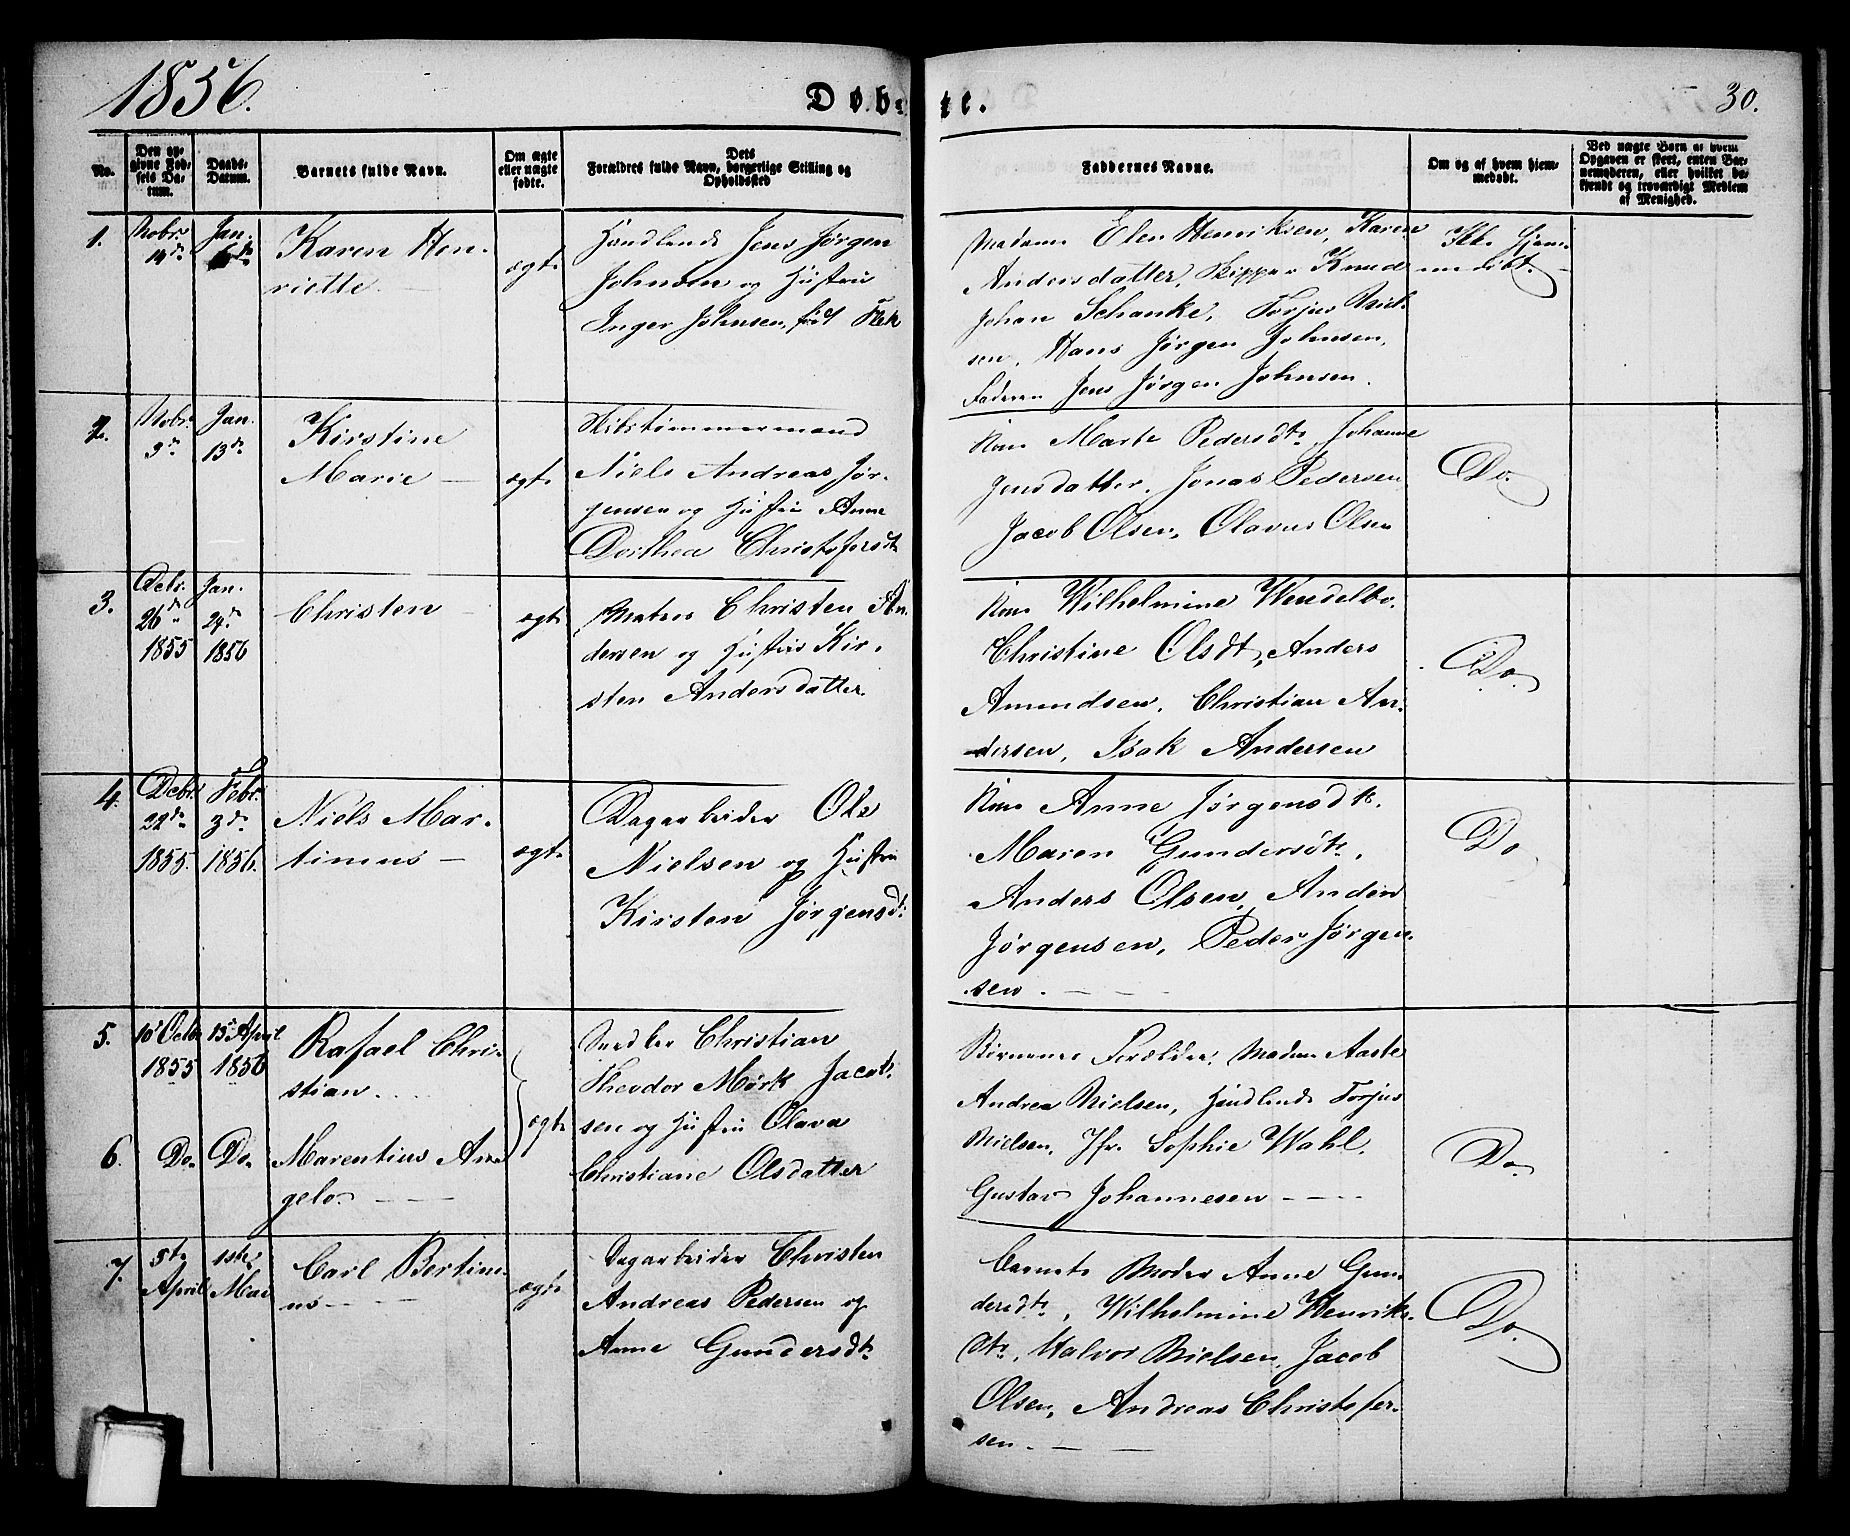 1856.
Døbte.
30.
No.
Den opgivne Fødsels Datum.
Daabs-Datum.
Barnets fulde Navn.
Om ægte eller uægte fødte.
Dets Forældres fulde Navn, borgerlige Stilling og Opholdssted
Faddernes Navne.
Om og af hvem hjemmedøbt.
Ved uægte Børn af hvem Opgaven er skeet, enten Barnemoderen, eller hvilket bekjendt og troværdigt Medlem af Menighed.
1.
Novbr.
14de
Jan.
6de
Karen Hen-
riette.
ægte
Handlende Jens Jørgen
Johnsen og Hustru
Inger Johnsen, født Flek
Madame Elen Henriksen, Karen
Andersdatter, Skipper Knud
Johan Schanke, Torjus Niel-
sen, Hans Jørgen Johnsen,
Faderen Jens Jørgen Johnsen.
Ikke hjem-
medøbt.
2.
Novbr.
3de
Jan.
13de
Kirstine
Marie
ægte
Skibstimmermand
Niels Andreas Jør-
gensen og Hustru Anne
Dorthea Christofersdtr
Kone Marte Pedersdtr, Johanne
Jensdatter, Jonas Pedersen
Jacob Olsen, Olavus Olsen
Do.
3.
26de
1855
Jan.
24de
1856
Christen
ægte
Matros Christen An-
dersen og Hustru Kir-
sten Andersdatter
Kone Wilhelmine Wendelbo,
Christine Olsdt, Anders
Amundsen, Christian An-
dersen, Isak Andersen
Do.
4.
Decbr.
22de
1855.
Febr.
3de
1856.
Niels Mar-
tinus
ægte
Dagarbeider Ole
Nielsen og Hustru
Kirsten Jørgensdt.
Kone Anne Jørgensdtr.
Maren Gundersdtr,
Anders Olsen, Anders
Jørgensen, Peder Jørgen-
sen.
Do
5.
10de Octbr
1855
15de April
1856
Rafael Chri-
stian.
ægte
Christian
Theodor Mørk Jacob-
sen og Hustru Olava
Christiane Olsdatter
Børnenes Forældre, Madame Aaste
Andrea Nielsen, Handlende Torjus
Nielsen, Jfr. Sophie Wahl,
Gustav Johannesen
Do.
6.
Do.
Do.
Marentius An-
gelo.
7.
5te
April
1ste
Mai
Carl Bertin-
us
ægte
Dagarbeider Christen
Andreas Pedersen og
Anne Gundersdtr
Barnets Moder Anne Gun-
dersdtr, Wilhelmine Henriks-
dtr, Halvor Nielsen, Jacob
Olsen, Andreas Christofer-
sen.
Do.